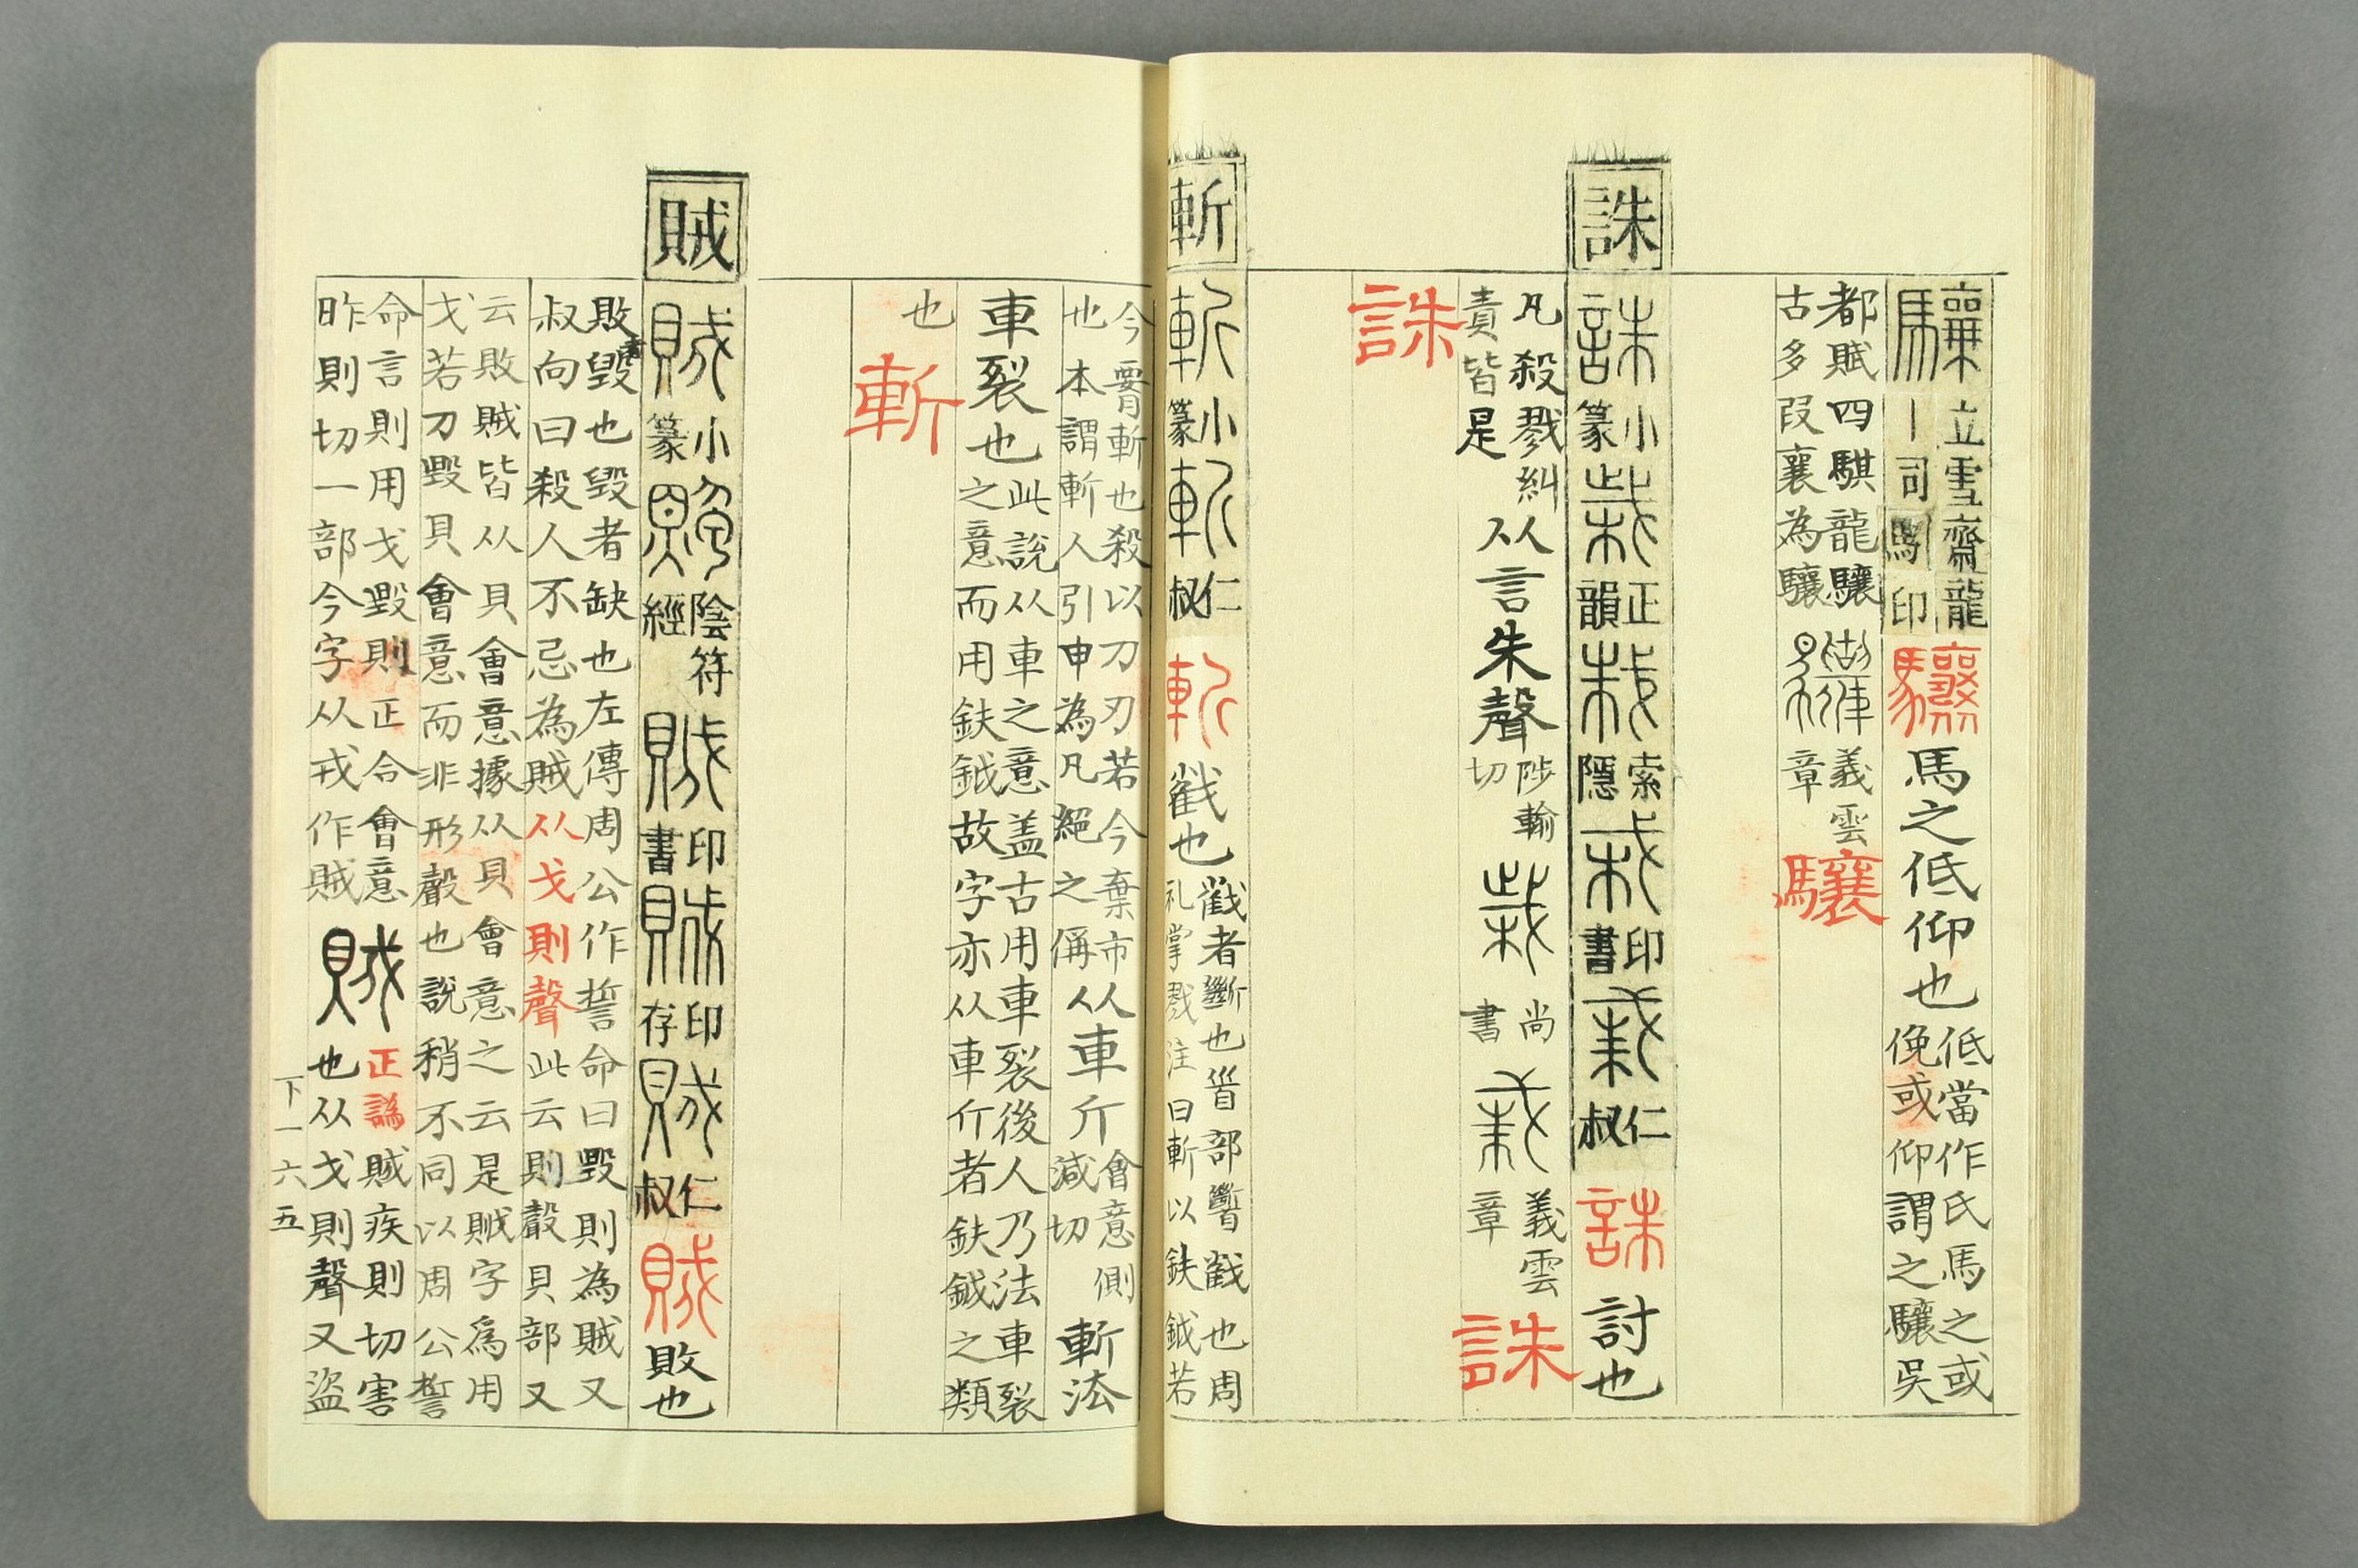 驤 立雪齋龍
馬｜司馬印 驤 馬之低仰也 低當作氐馬之或
俛或仰謂之驤吳
都賦四騏龍驤
古多叚襄為驤 義雲
章 驤
誅
誅 小
篆 正
韻 索
隱 印
書 仁
叔 誅 討也
凡殺戮糾
責皆是 从言朱聲 陟輸
切 尚
書 義雲
章 誅
誅
斬
斬 小
篆 斬 仁
叔 斬 㦸也 㦸者斷也首部㔁㦸也周
礼掌戮注曰斬以鈇鉞若
今要斬也殺以刀刃若今棄市从車斤 會意側
也本謂斬人引申為凡絕之偁 減切 斬法
車裂也 此說从車之意盖古用車裂後人乃法車裂
之意而用鈇鉞故字亦从車斤者鈇鉞之類
也 斬
賊
賊 小
篆 陰符
經 印
書 印
存 仁
叔 賊 敗也
敗毀也毀者缺也左傳周公作誓命曰毀則為賊又
叔向曰殺人不忌為賊从戈則聲此云則聲貝部又
云敗賊皆从貝會意據从貝會意之云是賊字為用
戈若刀毀貝會意而非形聲也說稍不同以周公誓
命言則用戈毀則正合會意
昨則切一部今字从戎作賊 賊 正譌賊疾則切害
也从戈則聲又盜
下一六五